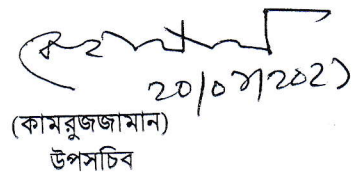 20/07/2021
(কামরুজজামান)
উপসচিব